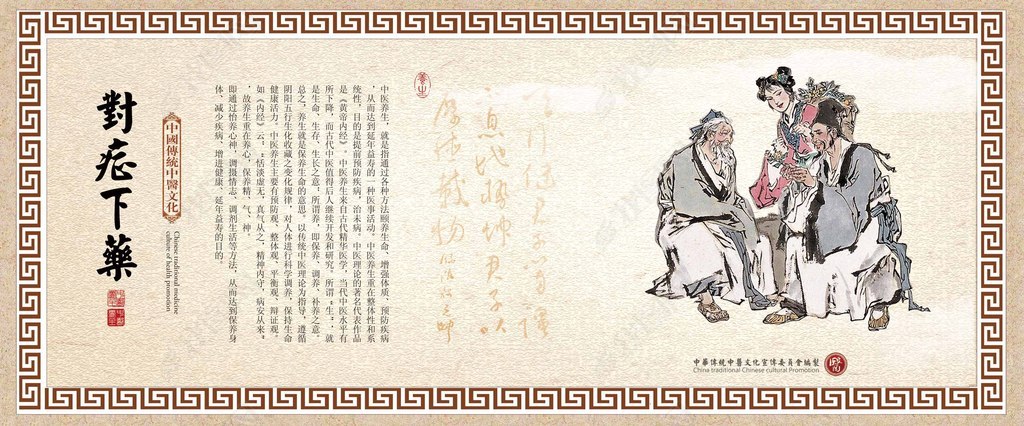 對症下藥
中國傳統中醫文化
Chinese traditional medicine
culture of health promotion
養生
中医养生，就是指通过各种方法颐养生命、增强体质、预防疾病
，从而达到延年益寿的一种医事活动。中医养生重在整体性和系
统性，目的是提前预防疾病，治未病。中医理论的著名代表作品
是《黄帝内经》。中医养生来自古代精华医学，当代中医水平有
所下降，而古代中医值得后人继续开发和研究。所谓“生”，就
是生命、生存、生长之意；所谓养，即保养、调养、补养之意。
总之，养生就是保养生命的意思。以传统中医理论为指导，遵循
阴阳五行生化收藏之变化规律，对人体进行科学调养，保持生命
健康活力。中医养生主要有预防观、整体观、平衡观、辩证观。
如《内经》云：“恬淡虚无，真气从之，精神内守，病安从来”
，故养生重在养心，保养精、气、神。
即通过怡养心神，调摄情志、调剂生活等方法，从而达到保养身
体、减少疾病、增进健康、延年益寿的目的。
中華傳統中醫文化宣傳委員會編製
China traditional Chinese cultural Promotion